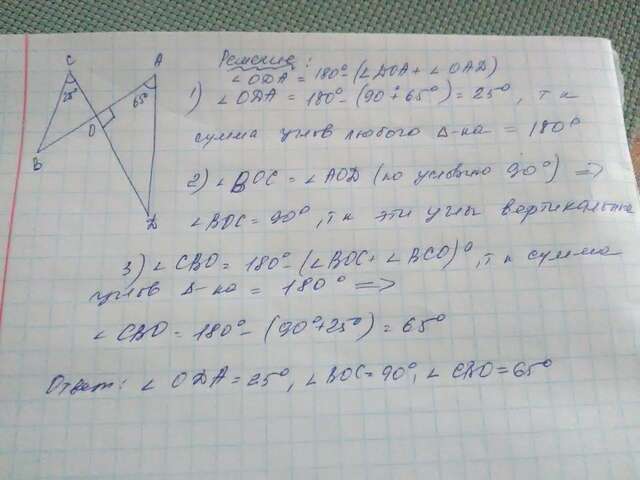 C
A
25°
65°
O
B
D
Решение:
∠ODA = 180° - (∠DOA + ∠OAD)
1) ∠ODA = 180° - (90° + 65°) = 25°, т к
сумма углов любого Δ-ка = 180°
2) ∠BOC = ∠AOD (по условию 90°) =>
∠BOC = 90°, т к эти углы вертикальны
3) ∠CBO = 180° - (∠BOC + ∠BCO)°, т к сумма
углов Δ-ка = 180° =>
∠CBO = 180° - (90° + 25°) = 65°
Ответ: ∠ODA = 25°, ∠BOC = 90°, ∠CBO = 65°